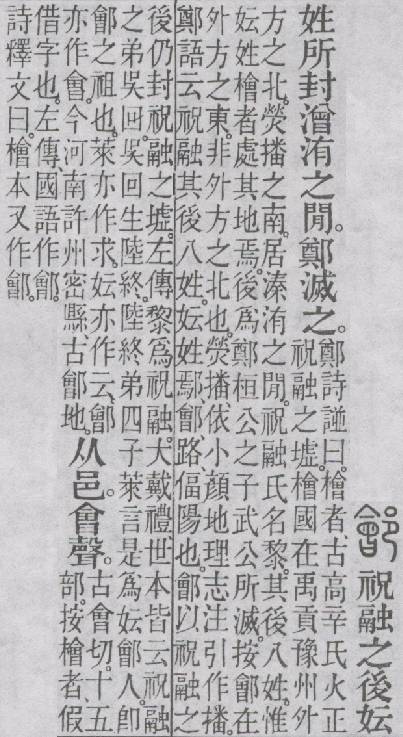 鄶祝融之後妘
姓所封潧洧之閒。鄭滅之。
鄭詩譜曰。檜者、古高辛氏火正
祝融之墟。檜國在禹貢豫州外
方之北。熒播之南。居溱洧之閒。祝融氏名黎。其後八姓。惟
妘姓檜者處其地焉。後爲鄭桓公之子武公所滅。按鄶在
外方之東。非外方之北也。熒播、依小顏地理志注引作播。
鄭語云祝融其後八姓。妘姓鄔鄶路偪陽也。鄶以祝融之
後仍封祝融之墟。左傳黎爲祝融。大戴禮、世本皆云祝融
之弟吳回。吳回生陸終。陸終弟四子萊言是爲妘鄶人。卽
鄶之祖也。萊亦作求。妘亦作云。鄶
亦作會。今河南許州密縣、古鄶地。
从邑。會聲。
古會切。十五
部。按檜者、假
借字也。左傳國語作鄶。
詩釋文曰。檜本又作鄶。